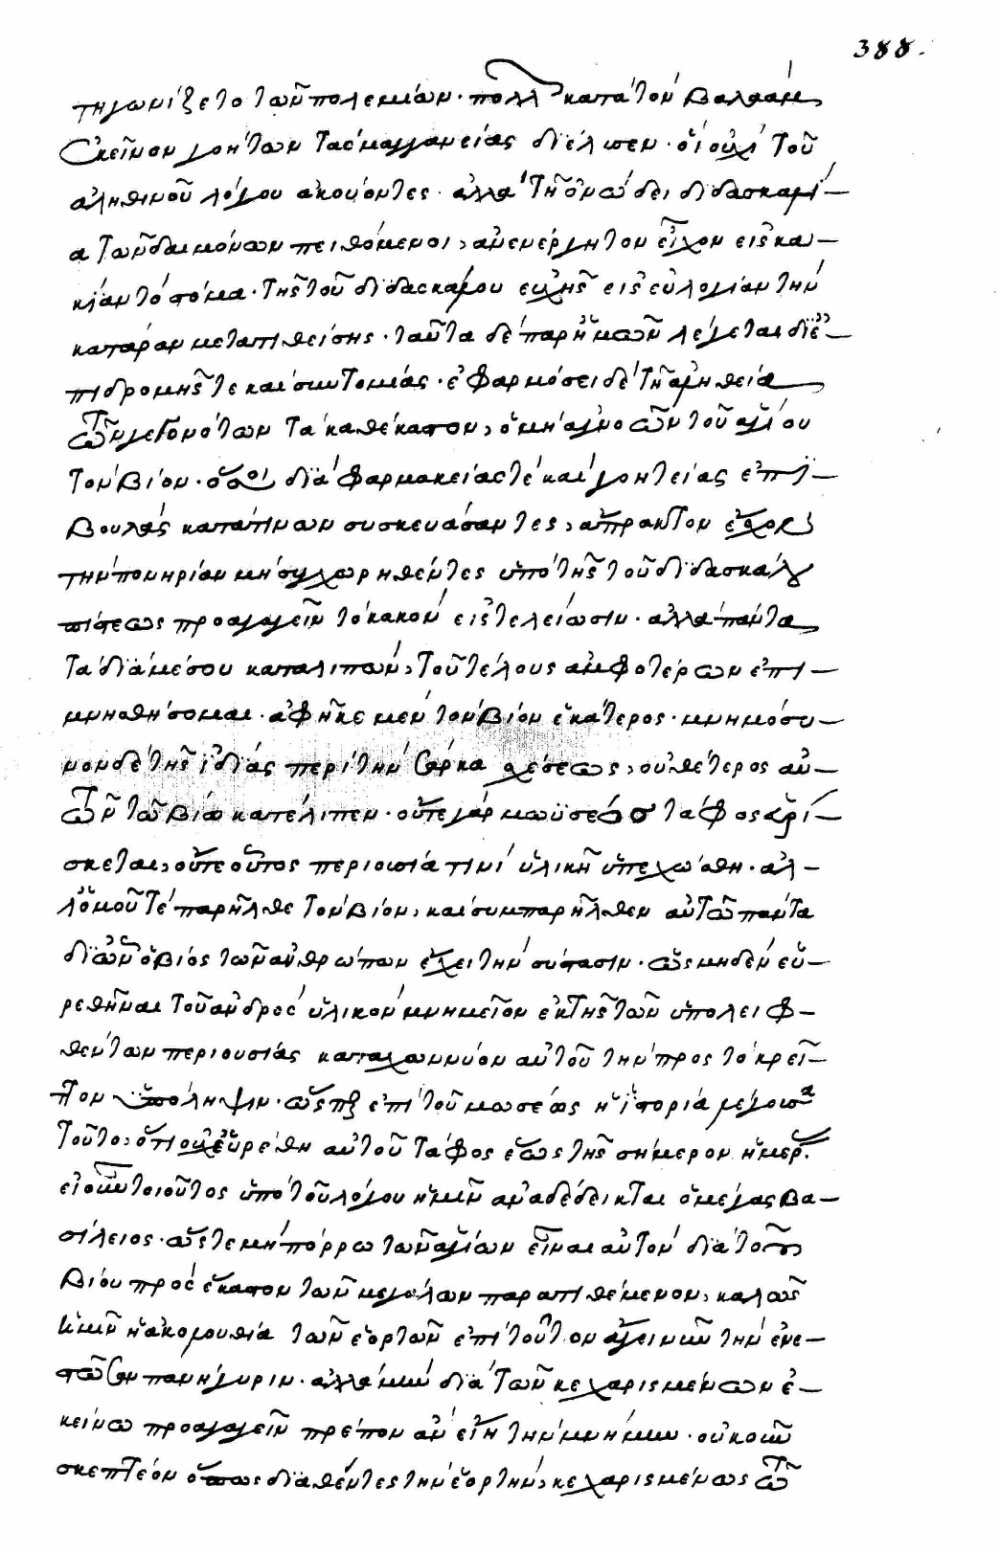 388.
τηγωνίζετο τῶν πολεμίων· πολλ κατὰ τὸν Βαλαὰμ
ἐκεῖνον γοήτων τὰς μαγγανείας διέλιπεν· οἱ οὐχὶ τοῦ
ἀληθινοῦ λόγου ἀκούοντες· ἀλλὰ τῇ ὀνώδει διδασκαλί-
α τῶν δαιμόνων πειθόμενοι, ἀνενέργητον εἶχον εἰς κα-
κίαν τὸ στόμα· τῆς τοῦ διδασκάλου εὐχῆς εἰς εὐλογίαν τὴν
κατάραν μετατιθείσης· ταῦτα δὲ παρ' ἡμῶν λέγεται δι' ἐ-
πιδρομῆς τε καὶ συντομίας· ἐφαρμόσει δὲ τῇ ἀληθείᾳ
τῶν γεγονότων τὰ καθέκαστον, ὁ μὴ ἀγνοῶν τοῦ ἁγίου
τὸν βίον· ὅσοι διὰ φαρμακείας τὲ καὶ γοητείας ἐπι-
βουλὰς κατά τινων συσκευάσαντες, ἄπρακτον ἔσχον
τὴν πονηρίαν μὴ συγχωρηθέντες ὑπὸ τῆς τοῦ διδασκάλου
πίστεως προαγαγεῖν τὸ κακὸν εἰς τελείωσιν· ἀλλὰ πάντα
τὰ διὰ μέσου καταλιπὼν, τοῦ τέλους ἀμφοτέρων ἐπι-
μνησθήσομαι· ἀφῆκε μὲν τὸν βίον ἑκάτερος· μνημόσυ-
νον δὲ τῆς ἰδίας περὶ τὴν σάρκα σχέσεως, οὐθέτερος αὐ-
τῶν τῷ βίῳ κατέλιπεν· οὔτε γὰρ μωϋσέως τάφος εὑρί-
σκεται, οὔτε οὗτος περιουσίᾳ τινὶ ὑλικῇ ὑπεχώσθη· ἀλ-
λ' ὁμοῦ τὲ παρῆλθε τὸν βίον, καὶ συμπαρῆλθεν αὐτῷ πάντα
δι' ὧν ὁ βίος τῶν ἀνθρώπων ἔχει τὴν σύστασιν· ὡς μηδὲν εὑ-
ρεθῆναι τοῦ ἀνδρὸς ὑλικὸν μνημεῖον ἐκ τῆς τῶν ὑπολειφ-
θέντων περιουσίας καταχωννύον αὐτοῦ τὴν πρὸς τὸ κρεῖτ-
τον ὑπόληψιν· ὥσπερ ἐπὶ τοῦ μωσέως ἡ ἱστορία
τοῦτο, ὅτι οὐχ εὑρέθη αὐτοῦ τάφος ἕως τῆς σήμερον ἡμέρ.
εἰ οὖν τοιοῦτος ὑπὸ τοῦ λόγου ἡμῖν ἀναδέδεικται ὁ μέγας βα-
σίλειος· ὥστε μὴ πόρρω τῶν ἁγίων εἶναι αὐτὸν διὰ τοῦ
βίου πρὸς ἕκαστον τῶν μεγάλων παρατιθέμενον, καλῶς
ἡμῖν ἡ ἀκολουθία τῶν ἑορτῶν ἐπὶ τοῦτον ἄγει νῦν τὴν ἐνε-
στῶσαν πανήγυριν· ἀλλὰ μὴν διὰ τῶν κεχαρισμένων ἐ-
κείνῳ προαγαγεῖν πρέπον ἂν εἴη τὴν μνήμην· οὐκοῦν
σκεπτέον ὅπως διαθέντες τὴν ἑορτὴν, κεχαρισμένως